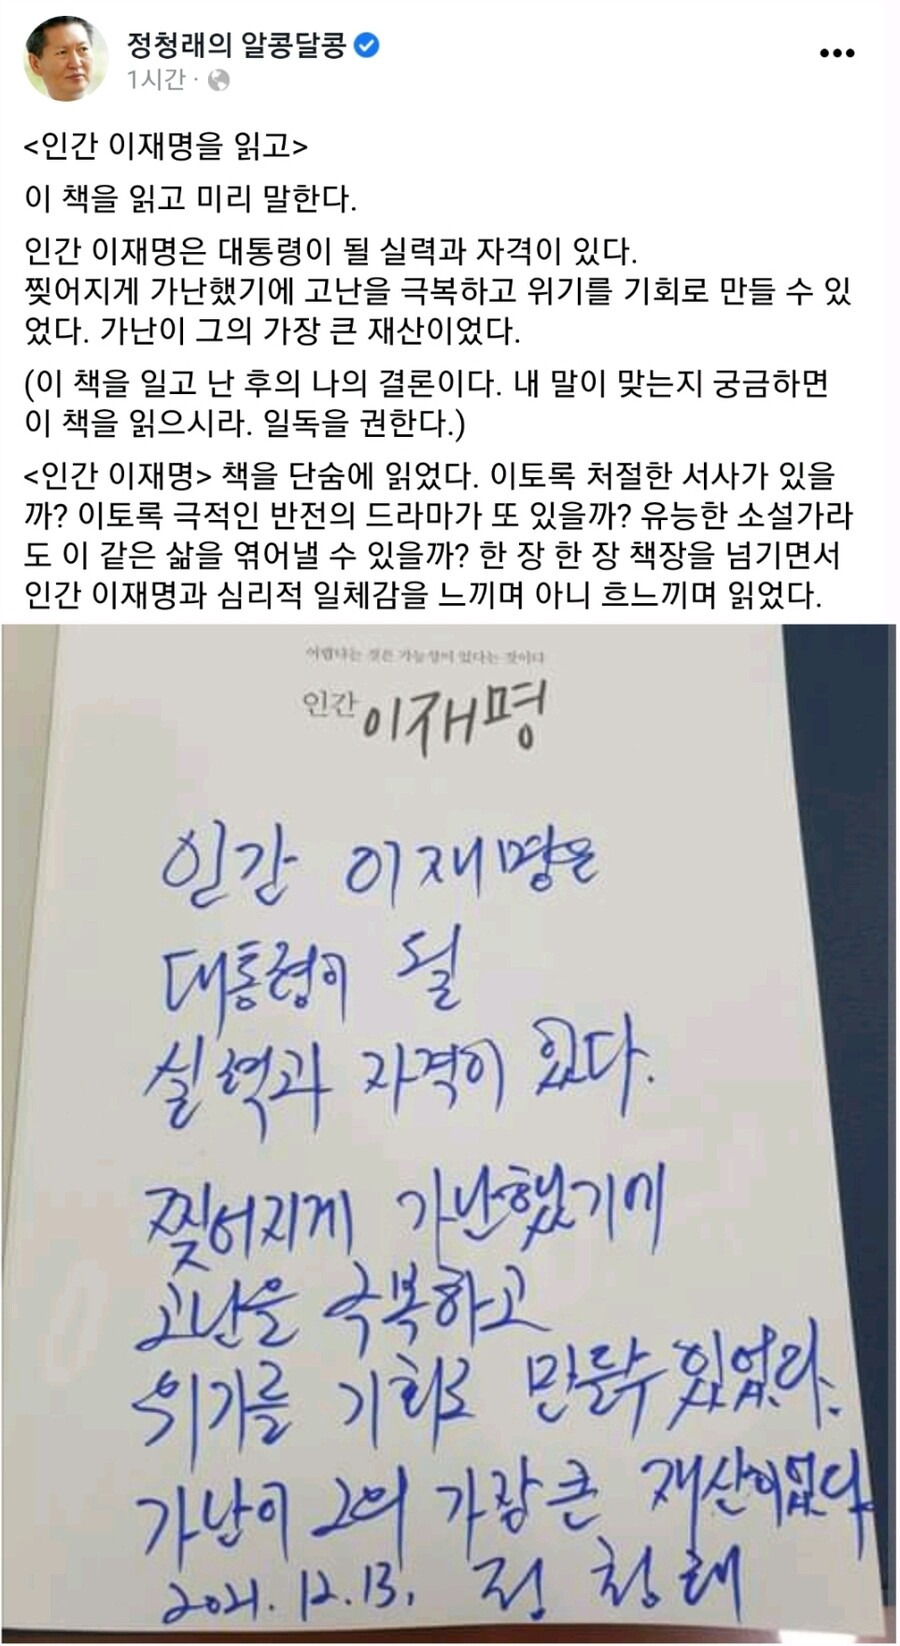 정청래의 알콩달콩
1시간 ·
<인간 이재명을 읽고>
이 책을 읽고 미리 말한다.
인간 이재명은 대통령이 될 실력과 자격이 있다.
찢어지게 가난했기에 고난을 극복하고 위기를 기회로 만들 수 있
었다. 가난이 그의 가장 큰 재산이었다.
(이 책을 일고 난 후의 나의 결론이다. 내 말이 맞는지 궁금하면
이 책을 읽으시라. 일독을 권한다.)
<인간 이재명> 책을 단숨에 읽었다. 이토록 처절한 서사가 있을
까? 이토록 극적인 반전의 드라마가 또 있을까? 유능한 소설가라
도 이 같은 삶을 엮어낼 수 있을까? 한 장 한 장 책장을 넘기면서
인간 이재명과 심리적 일체감을 느끼며 아니 흐느끼며 읽었다.
어렵다는 것은 가능성이 있다는 것이다
인간 이재명
인간 이재명은
대통령이 될
실력과 자격이 있다.
찢어지게 가난했기에
고난을 극복하고
위기를 기회로 만들수 있었다.
가난이 그의 가장 큰 재산이었다
2021. 12. 13. 정청래